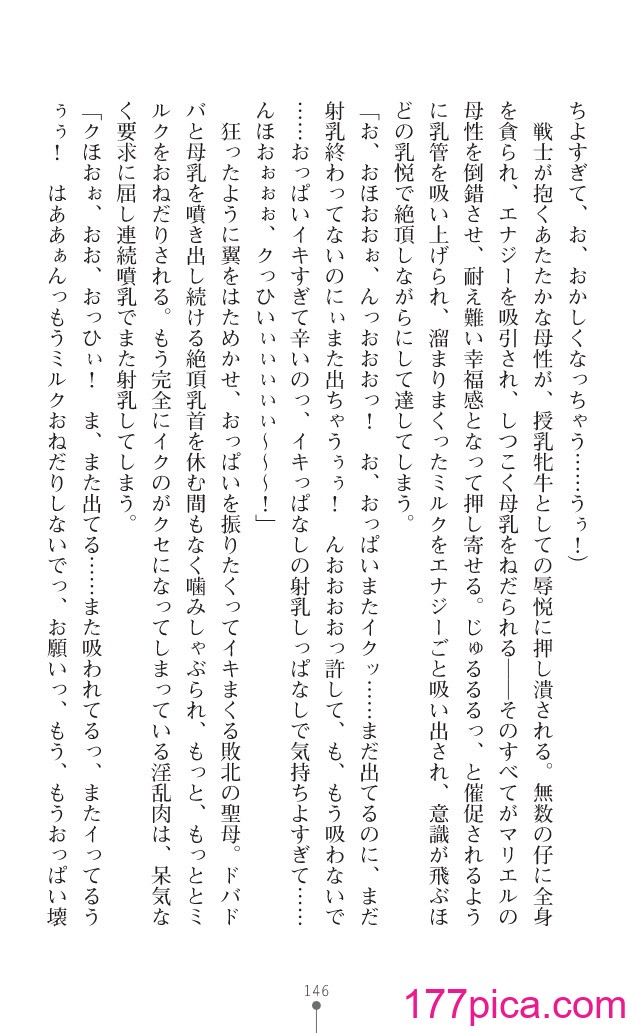 ちよすぎて、お、おかしくなっちゃう……うぅ！）
　戦士が抱くあたたかな母性が、授乳牝牛としての辱悦に押し潰される。無数の仔に全身
を貪られ、エナジーを吸引され、しつこく母乳をねだられる――そのすべてがマリエルの
母性を倒錯させ、耐え難い幸福感となって押し寄せる。じゅるるるっ、と催促されるよう
に乳管を吸い上げられ、溜まりまくったミルクをエナジーごと吸い出され、意識が飛ぶほ
どの乳悦で絶頂しながらにして達してしまう。
「お、おほおおぉ、んっおおおっ！　お、おっぱいまたイクッ……まだ出てるのに、まだ
射乳終わってないのにぃまた出ちゃうぅぅ！　んおおおおっ許して、も、もう吸わないで
……おっぱいイキすぎて辛いのっ、イキっぱなしの射乳しっぱなしで気持ちよすぎて……
んほおぉぉぉ、クっひいぃぃぃぃぃ～～～！」
　狂ったように翼をはためかせ、おっぱいを振りたくってイキまくる敗北の聖母。ドバド
バと母乳を噴き出し続ける絶頂乳首を休む間もなく噛みしゃぶられ、もっと、もっととミ
ルクをおねだりされる。もう完全にイクのがクセになってしまっている淫乱肉は、呆気な
く要求に屈し連続噴乳でまた射乳してしまう。
「クほおぉ、おお、おっひぃ！　ま、また出てる……また吸われてるっ、またイってるう
ぅぅ！　はああぁんっもうミルクおねだりしないでっ、お願いっ、もう、もうおっぱい壊
146
177pica.com